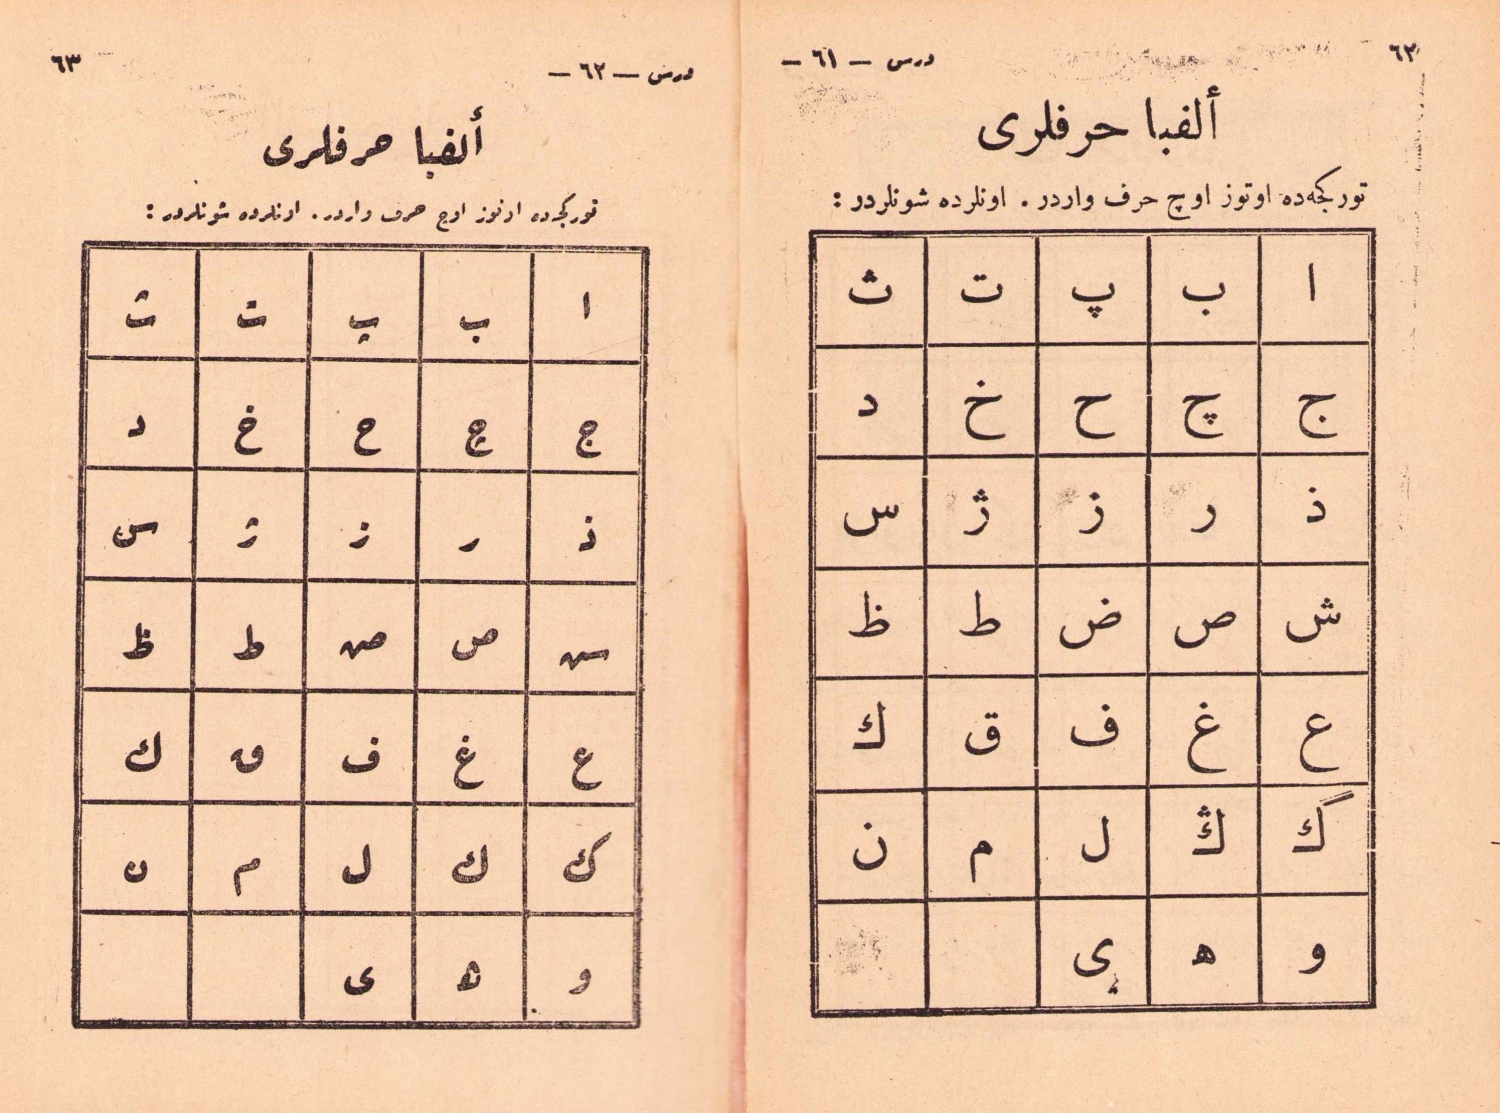 ٦٢
درس — ٦١ —
ألفبا حرفلری
تورکجه‌ده اوتوز اوچ حرف واردر . اونلرده شونلردر :
ا ب پ ت ث
ج چ ح خ د
ذ ر ز ژ س
ش ص ض ط ظ
ع غ ف ق ك
گ ڭ ل م ن
و ه ی
٦٣
درس — ٦٢ —
ألفبا حرفلری
تورکجه‌ده اوتوز اوچ حرف واردر . اونلرده شونلردر :
ا ب پ ت ث
ج چ ح خ د
ذ ر ز ژ س
ش ص ض ط ظ
ع غ ف ق ك
گ ك ل م ن
و ه ی